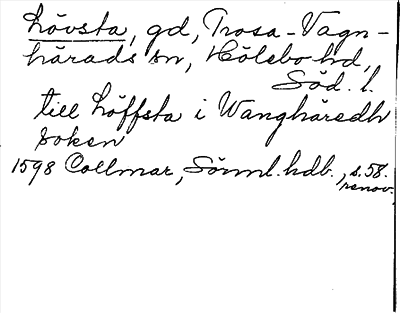 Lövsta, gd, Trosa-Vagn-
härads sn, Hölebo hd,
Söd. l.
till Löffsta i Wanghäredh
soken
1598 Collmar, Sörml. hdb., s. 58.
renov.